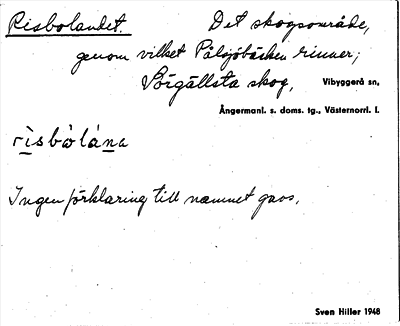 Risbolandet. Det skogsområde,
genom vilket Pålsjöbäcken rinner;
Börgällsta skog, Vibyggerå sn,
Ångermanl. s. doms. tg., Västernorrl. l.
rìsbòlána
Ingen förklaring till namnet gavs.
Sven Hiller 1948